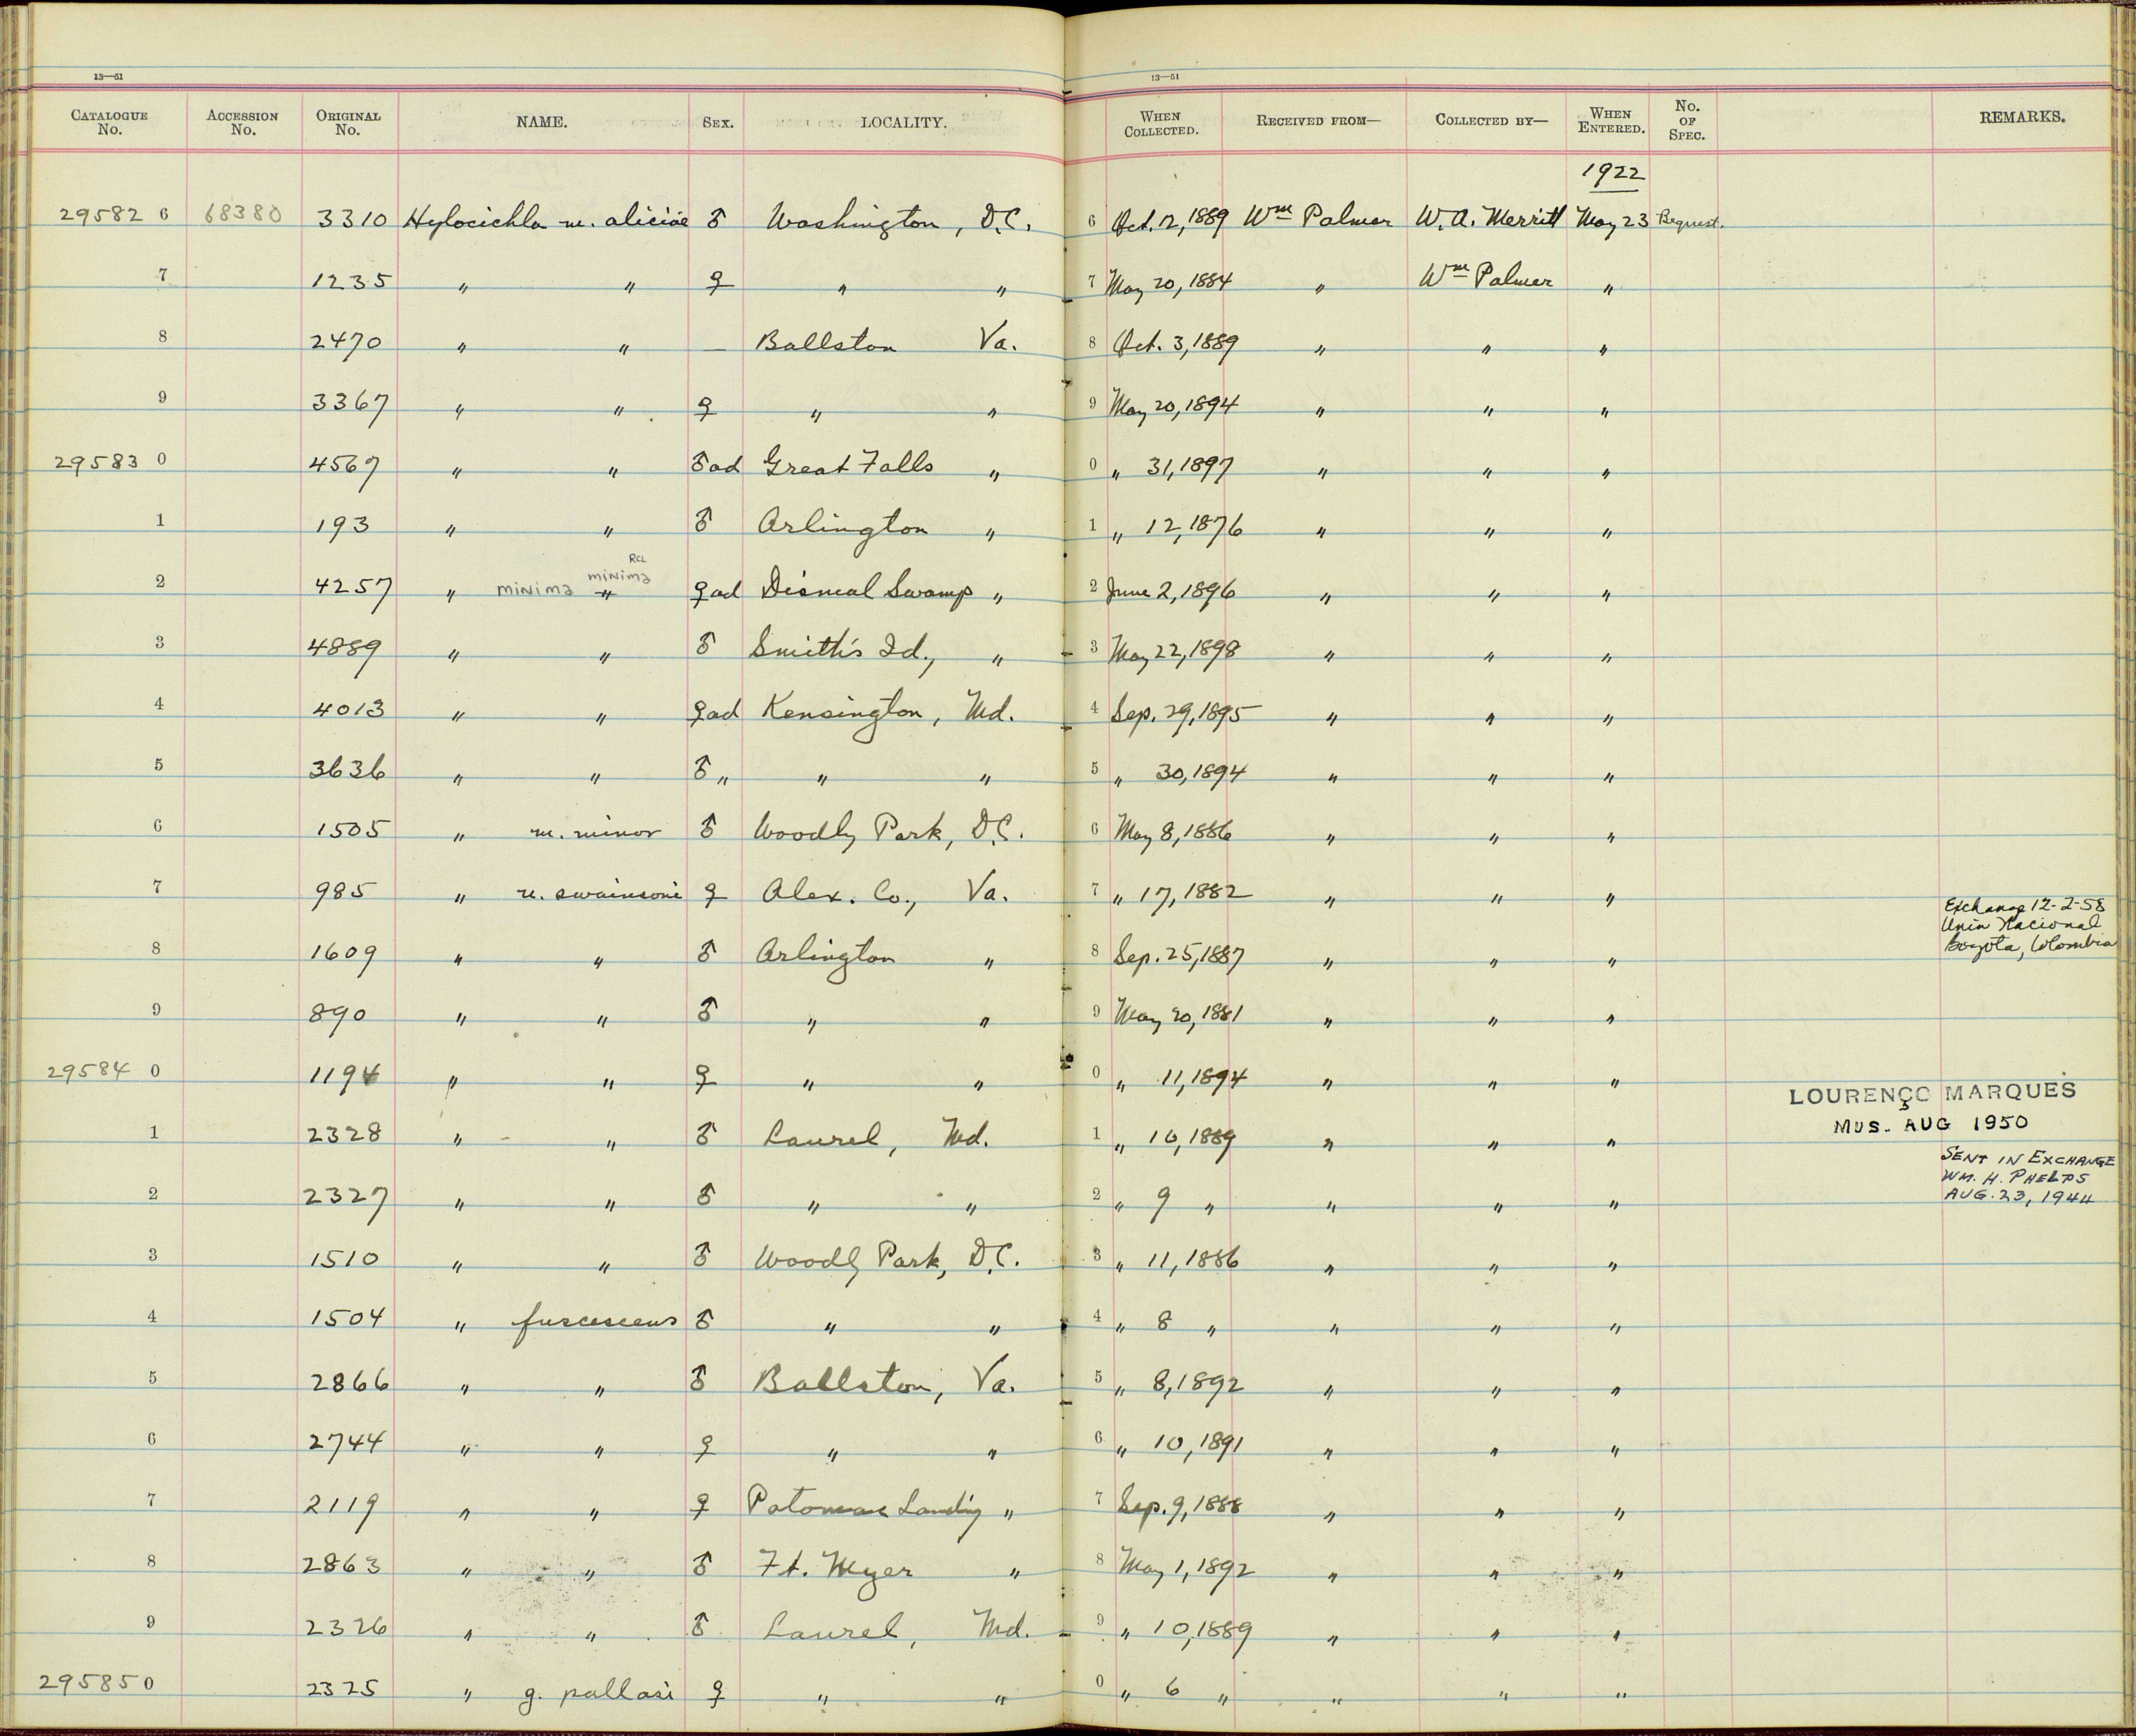 13—51 13—51
CATALOGUE No. ACCESSION No. ORIGINAL No. NAME. SEX. LOCALITY. WHEN COLLECTED. RECEIVED FROM— COLLECTED BY— WHEN ENTERED. No. OF SPEC. REMARKS.
1922
29582 6 68380 3310 Hylocichla m. aliciae ♂ Washington, D.C. 6 Oct. 12, 1889 Wm Palmer W. A. Merritt May 23 Bequest.
7 1235 " " ♀ " " 7 May 20, 1884 " Wm Palmer "
8 2470 " " — Ballston Va. 8 Oct. 3, 1889 " " "
9 3367 " " ♀ " " 9 May 20, 1894 " " "
29583 0 4567 " " ♂ ad Great Falls " 0 " 31, 1897 " " "
1 193 " " ♂ Arlington " 1 " 12, 1876 " " "
RCL
minima
2 4257 " minima " ♀ ad Dismal Swamp " 2 June 2, 1896 " " "
3 4889 " " ♂ Smith's Id., " 3 May 22, 1898 " " "
4 4013 " " ♀ ad Kensington, Md. 4 Sep. 29, 1895 " " "
5 3636 " " ♂ " " " 5 " 30, 1894 " " "
6 1505 " m. minor ♂ Woodly Park, D.C. 6 May 8, 1886 " " "
7 985 " u. swainsoni ♀ Alex. Co., Va. 7 " 17, 1882 " " "
Exchange 12-2-58
Unin Nacional
Bogota, Colombia
8 1609 " " ♂ Arlington " 8 Sep. 25, 1887 " " "
9 890 " " ♂ " " 9 May 20, 1881 " " "
29584 0 1194 " " ♀ " " 0 " 11, 1894 " " "
LOURENÇO MARQUES
MUS. AUG 1950
1 2328 " " ♂ Laurel, Md. 1 " 10, 1889 " " "
SENT IN EXCHANGE
WM. H. PHELPS
AUG. 23, 1944
2 2327 " " ♂ " " 2 " 9 " " " "
3 1510 " " ♂ Woodly Park, D.C. 3 " 11, 1886 " " "
4 1504 " fuscescens ♂ " " 4 " 8 " " " "
5 2866 " " ♂ Ballston, Va. 5 " 8, 1892 " " "
6 2744 " " ♀ " " 6 " 10, 1891 " " "
7 2119 " " ♀ Potomac Landing " 7 Sep. 9, 1888 " " "
8 2863 " " ♂ Ft. Myer " 8 May 1, 1892 " " "
9 2326 " " ♂ Laurel, Md. 9 " 10, 1889 " " "
29585 0 2325 " g. pallasi ♀ " " 0 " 6 " " " "